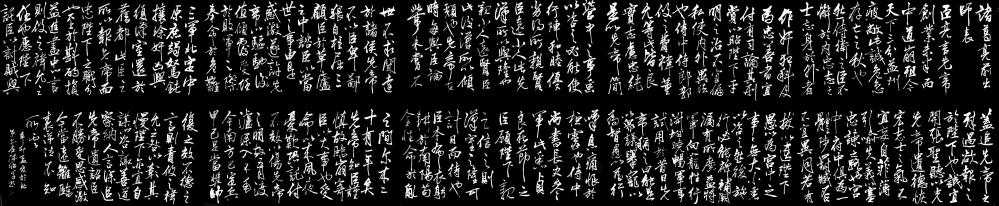 諸葛亮前出
師表
臣亮言先帝
創業未半而
中道崩殂今
天下三分益州
疲敝此誠危急
存亡之秋也
然侍衛之臣不
懈於內忠志之
士忘身於外者
蓋追先帝之
殊遇欲報之
於陛下也誠宜
開張聖聽以光
先帝遺德恢
弘志士之氣不
宜妄自菲薄
引喻失義以塞
忠諫之路也宮
中府中俱為一
體陟罰臧否
不宜異同若有
作奸犯科及
為忠善者宜
付有司論其刑
賞以昭陛下平
明之治不宜偏
私使內外異法
也侍中侍郎郭
攸之費禕董
允等此皆良
實志慮忠純
是以先帝簡
拔以遺陛下
愚以為宮中之
事事無大小悉
以咨之然後施
行必能裨補闕
漏有所廣益將
軍向寵性行
淑均曉暢軍事
試用於昔日先
帝稱之曰能
是以眾議舉
寵為督愚以為
營中之事悉
以咨之必能使
行陣和睦優
劣得所也親賢
臣遠小人此先
漢所以興隆也
親小人遠賢臣
此後漢所以傾
頹也先帝在
時每與臣論
此事未嘗不
嘆息痛恨於
桓靈也侍中
尚書長史參
軍此悉貞
亮死節之
臣願陛下親
之信之則
漢室之隆可
計日而待也
臣本布衣躬
耕於南陽苟
全性命於亂
世不求聞達
於諸侯先帝
不以臣卑鄙
猥自枉屈三
顧臣於草廬
之中諮臣以當
世之事由是
感激遂許先
帝以驅馳後
值傾覆受任
於敗軍之際
奉命於危難
之間爾來二
十有一年矣
先帝知臣謹
慎故臨崩寄
臣以大事也受
命以來夙夜
憂嘆恐託付
不效以傷先帝
之明故五月渡
瀘深入不毛
今南方已定兵
甲已足當獎帥
三軍北定中
原庶竭駑鈍
攘除奸凶興
復漢室還於
舊都此臣所
以報先帝而
忠陛下之職分
也至於斟酌損
益進盡忠言
則攸之禕允之
任也願陛下託
臣以討賊興
復之效不效則
治臣之罪以告
先帝之靈若無
興德之言則責
攸之禕允等之
咎以彰其慢
陛下亦宜自
謀以諮諏善道
察納雅言深追
先帝遺詔臣
不勝受恩感激
今當遠離臨
表涕泣不知
所云